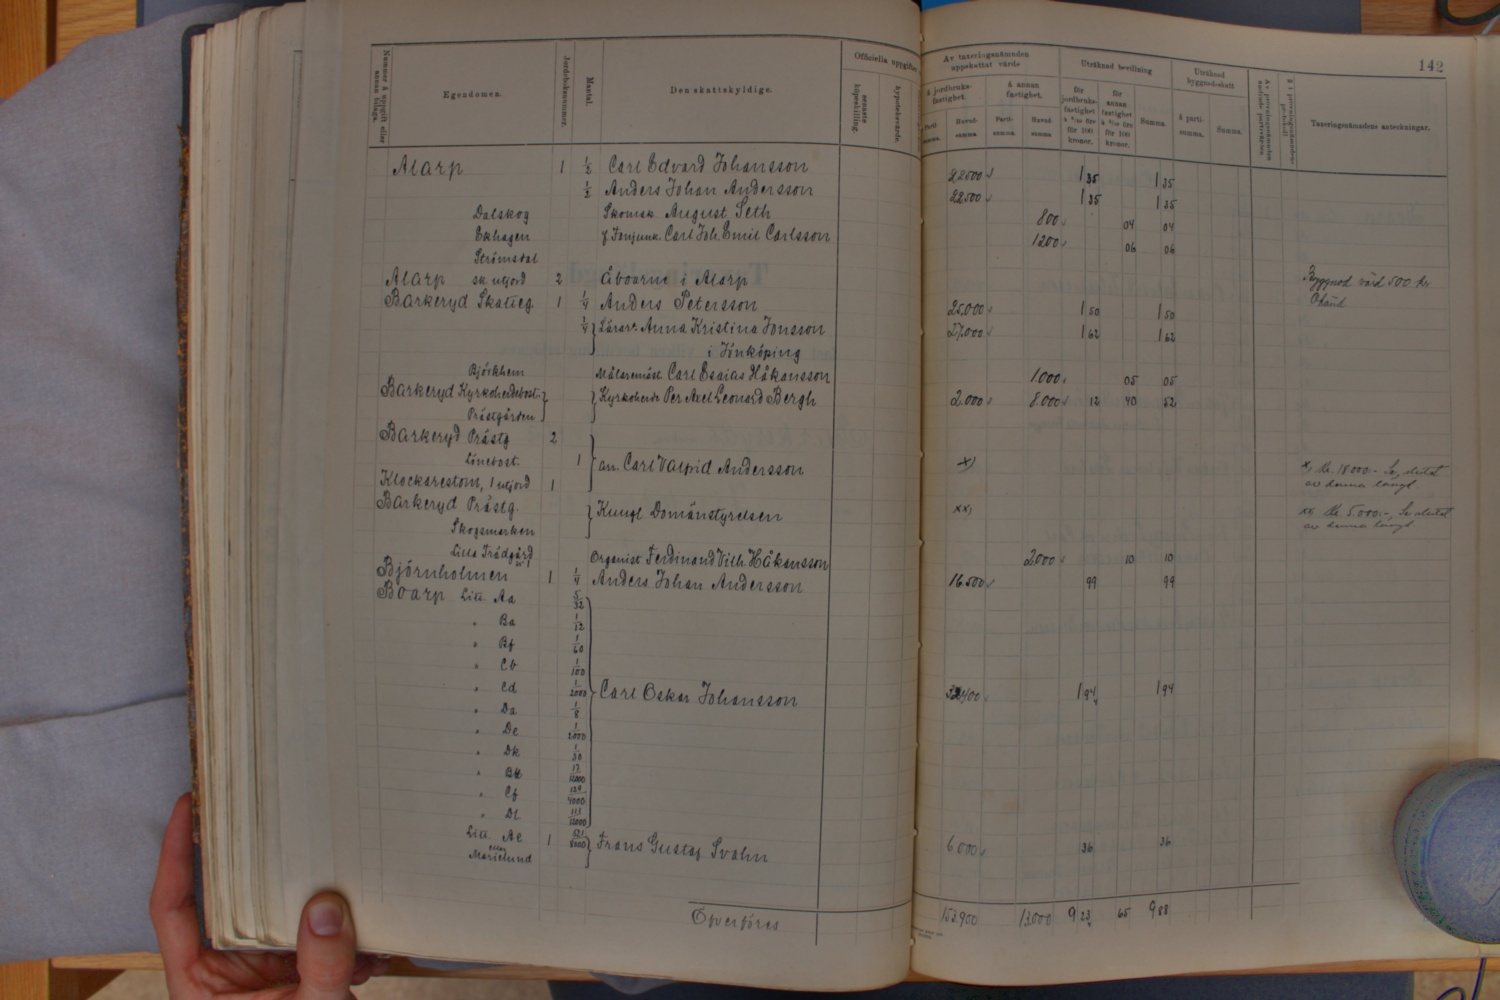 142
Nummer å uppgift eller annan bilaga.
Egendomen.
Jordeboksnummer.
Mantal.
Den skattskyldige.
Officiella uppgifter
senaste köpeskilling.
hypoteksvärde.
Av taxeringsnämnden uppskattat värde
Å jordbruksfastighet.
Partisumma.
Huvudsumma.
Å annan fastighet.
Partisumma.
Huvudsumma.
Uträknad bevillning
för jordbruksfastighet å 6/10 öre för 100 kronor.
för annan fastighet å 5/10 öre för 100 kronor.
Summa.
Uträknad byggnadsskatt
Å partisumma.
Summa.
Taxeringsnämndens anteckningar.
Alarp 1 1/2 Carl Edvard Johansson 22500 1 35 1 35
1/2 Anders Johan Andersson 22500 1 35 1 35
Dalskog Skomak. August Seth 800 04 04
Ekhagen f. Fanjunk. Carl Joh. Emil Carlsson 1200 06 06
Strömstal
Alarp sk utjord 2 Åboerne i Alarp Byggnad värd 500 kr
Barkeryd Skatteg. 1 1/4 Anders Petersson 25000 1 50 1 50
1/4 Lärar: Anna Kristina Jonsson 27000 1 62 1 62
i Jönköping
Björkhem Målaremäst. Carl Esaias Håkansson 1000 05 05
Barkeryd Kyrkoherdebost. Kyrkoherde Per Axel Leonard Bergh 2000 8000 12 40 52
Prästgården
Barkeryd Prästg 2
Lönebost. 1 arr. Carl Valfrid Andersson x) x, Kr. 18000- Se, slutet
av denna längd
Klockarestom, 1 utjord 1
Barkeryd Prästg. Kungl Domänstyrelsen xx) xx, Kr 5.000:-, Se slutet
av denna längd
Skogsmarken
Lilla Trädgård Organist Ferdinand Vilh. Håkansson 2000 10 10
Björnholmen 1 1/4 Anders Johan Andersson 16500 99 99
Boarp Litt. Aa 5/32
" Ba 1/12
" Bf 1/60
" Cb 1/100
" Cd 1/2000 Carl Oskar Johansson 32400 1 94 1 94
" Da 1/8
" De 1/2000
" Dk 1/30
" 17/12000
" Cf 129/4000
" Dl 111/12000
Litt. Ae 1 121/8000 Frans Gustaf Svahn 6000 36 36
eller
Marielund
Öfverföres 153900 13000 9 23 65 9 88